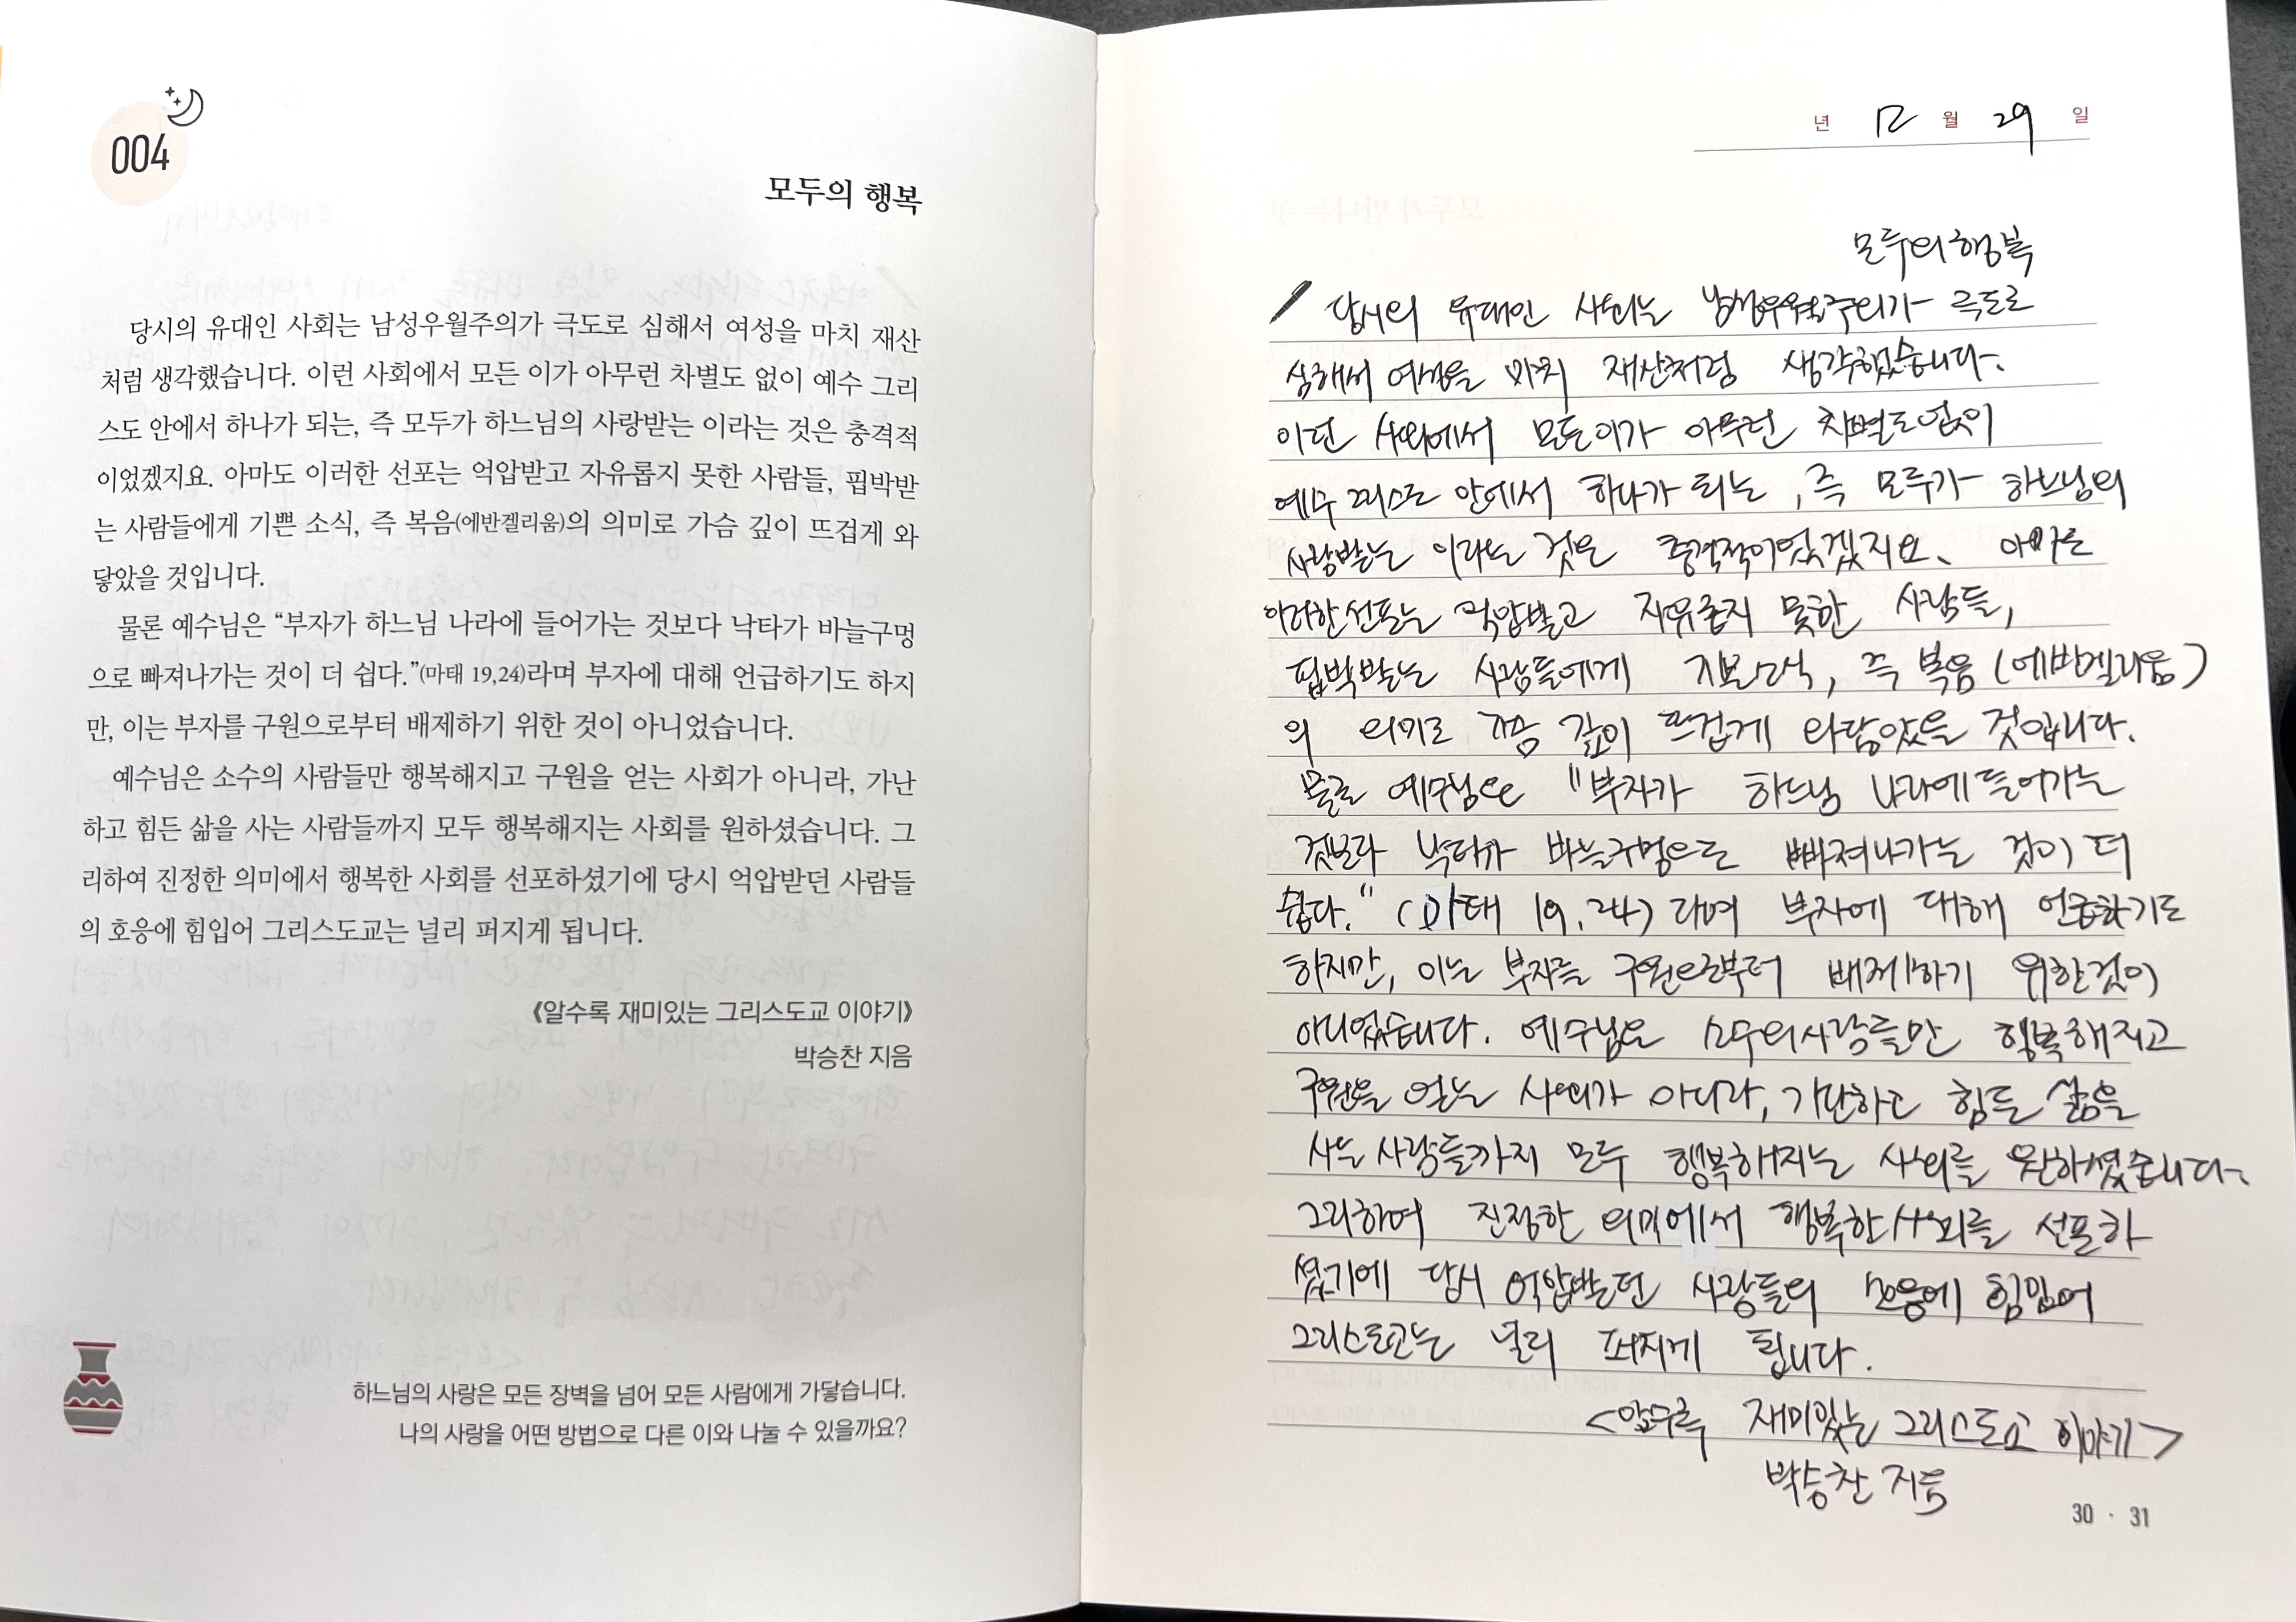 004
모두의 행복
당시의 유대인 사회는 남성우월주의가 극도로 심해서 여성을 마치 재산
처럼 생각했습니다. 이런 사회에서 모든 이가 아무런 차별도 없이 예수 그리
스도 안에서 하나가 되는, 즉 모두가 하느님의 사랑받는 이라는 것은 충격적
이었겠지요. 아마도 이러한 선포는 억압받고 자유롭지 못한 사람들, 핍박받
는 사람들에게 기쁜 소식, 즉 복음(에반겔리움)의 의미로 가슴 깊이 뜨겁게 와
닿았을 것입니다.
물론 예수님은 “부자가 하느님 나라에 들어가는 것보다 낙타가 바늘구멍
으로 빠져나가는 것이 더 쉽다.”(마태 19,24)라며 부자에 대해 언급하기도 하지
만, 이는 부자를 구원으로부터 배제하기 위한 것이 아니었습니다.
예수님은 소수의 사람들만 행복해지고 구원을 얻는 사회가 아니라, 가난
하고 힘든 삶을 사는 사람들까지 모두 행복해지는 사회를 원하셨습니다. 그
리하여 진정한 의미에서 행복한 사회를 선포하셨기에 당시 억압받던 사람들
의 호응에 힘입어 그리스도교는 널리 퍼지게 됩니다.
《알수록 재미있는 그리스도교 이야기》
박승찬 지음
하느님의 사랑은 모든 장벽을 넘어 모든 사람에게 가닿습니다.
나의 사랑을 어떤 방법으로 다른 이와 나눌 수 있을까요?
년 12 월 29 일
모두의 행복
당시의 유대인 사회는 남성우월주의가 극도로
심해서 여성을 마치 재산처럼 생각했습니다.
이런 사회에서 모든이가 아무런 차별도없이
예수 그리스도 안에서 하나가 되는, 즉 모두가 하느님의
사랑받는 이라는 것은 충격적이었겠지요. 아마도
이러한선포는 억압받고 자유롭지 못한 사람들,
핍박받는 사람들에게 기쁜소식, 즉 복음(에반겔리움)
의 의미로 가슴 깊이 뜨겁게 와닿았을 것입니다.
물론 예수님은 "부자가 하느님 나라에 들어가는
것보다 낙타가 바늘구멍으로 빠져나가는 것이 더
쉽다." (마태 19,24) 라며 부자에 대해 언급하기도
하지만, 이는 부자를 구원으로부터 배제하기 위한것이
아니었습니다. 예수님은 소수의사람들만 행복해지고
구원을 얻는 사회가 아니라, 가난하고 힘든 삶을
사는 사람들까지 모두 행복해지는 사회를 원하셨습니다.
그리하여 진정한 의미에서 행복한사회를 선포하
셨기에 당시 억압받던 사람들의 호응에 힘입어
그리스도교는 널리 퍼지게 됩니다.
<알수록 재미있는 그리스도교 이야기>
박승찬 지음
30 · 31